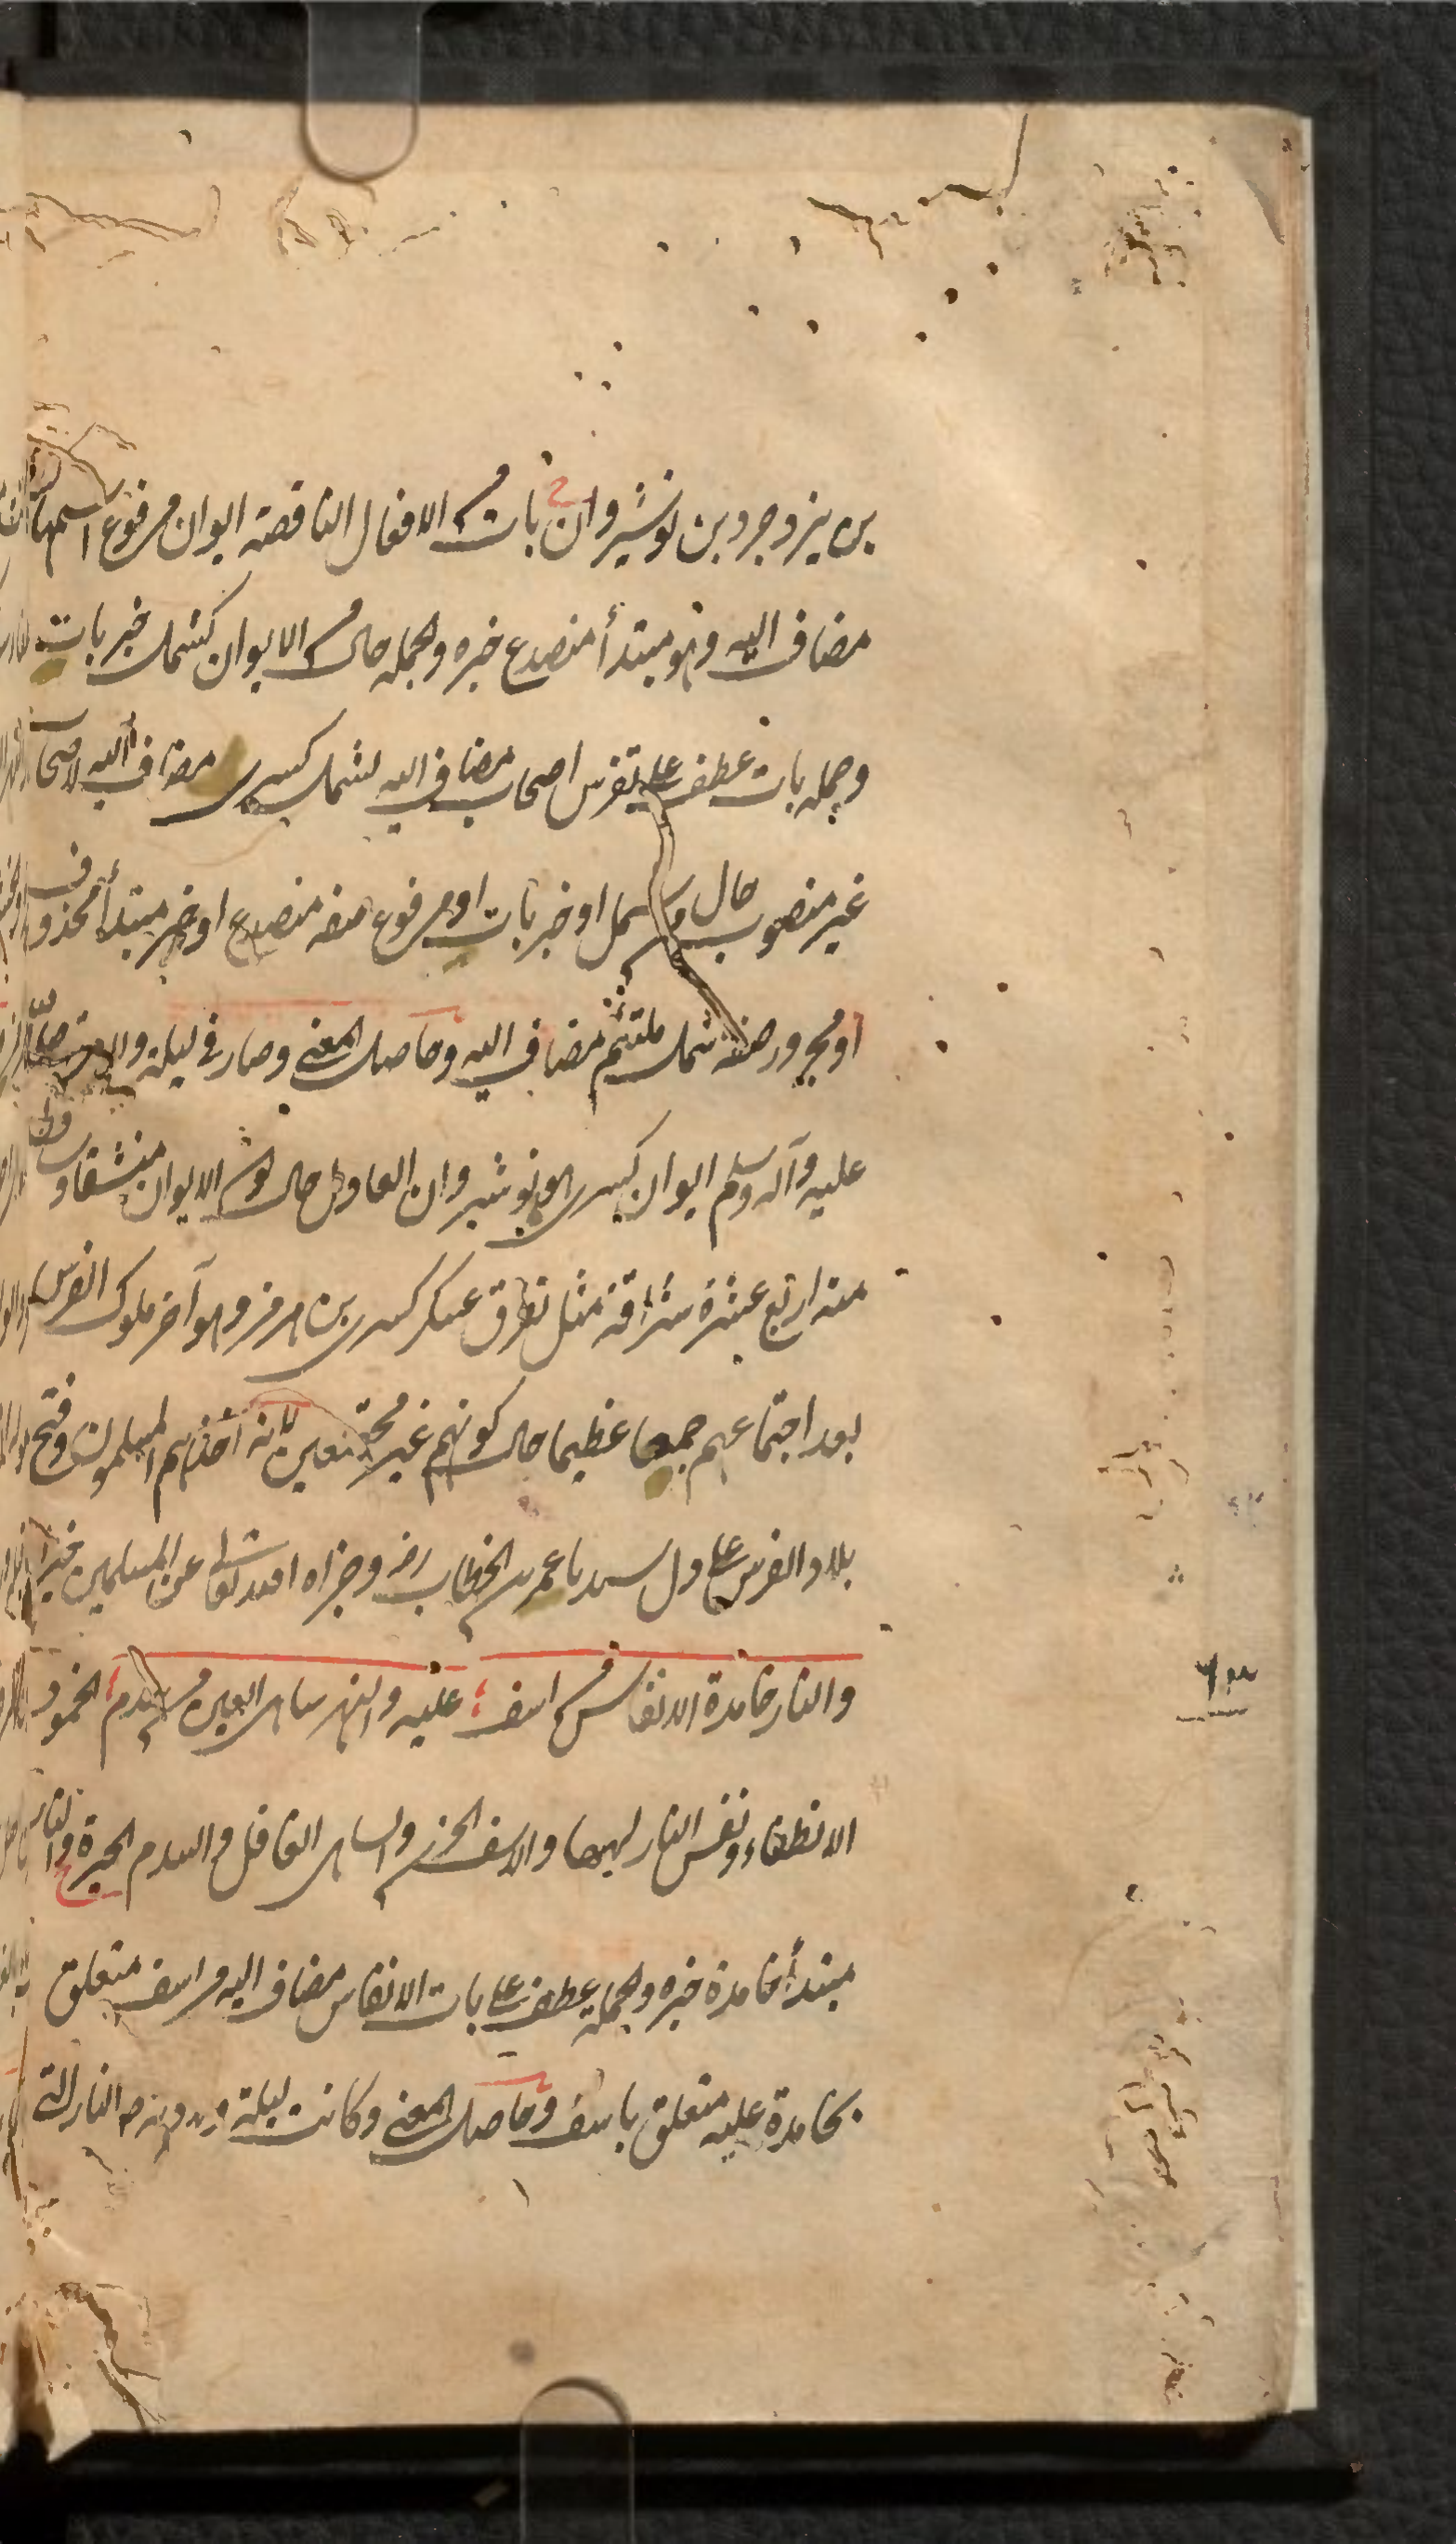 بن يزوجرد بن نوشيروان بات من الافعال الناقصة ايوان مرفوع اسمها
مضاف اليه وهو مبتدأ منصدع خبره والجملة حال من الايوان كشمل خبر بات
وجملة بات عطف على تفرس اصحاب مضاف اليه لشمل كسرى مضاف اليه لاصحاب
غير منصوب حال من شمل او خبر بات او مرفوع صفة منصدع او خبر مبتدأ محذوف
او مجرور صفة شمل ملتئم مضاف اليه وحاصل المعنى وصار في ليلة
عليه وآله وسلم ايوان كسرى نوشيروان العادل حال كون الايوان منشقا
منه اربع عشرة شرافة مثل تفرق عسكر كسرى بن هرمز وهو آخر ملوك الفرس
بعد اجتماعهم جمعا عظيما حال كونهم غير مجتمعين لانه اخذهم المسلمون وفتح
بلاد الفرس على ول سيدنا عمر بن الخطاب رضه وجزاه الله تعالى عن المسلمين خيرا
والنار خامدة الانفاس من اسف عليه والنهر ساهى العين من سدم الخمود
الانطفاء ونفس النار لهبها والاسف الحزن والساهى الغافل والسدم الحيرة والنار
مبتدأ خامدة خبره والجملة عطف على بات الانفاس مضاف اليه من اسف متعلق
بخامدة عليه متعلق باسف وحاصل المعنى وكانت ليلة النار التى